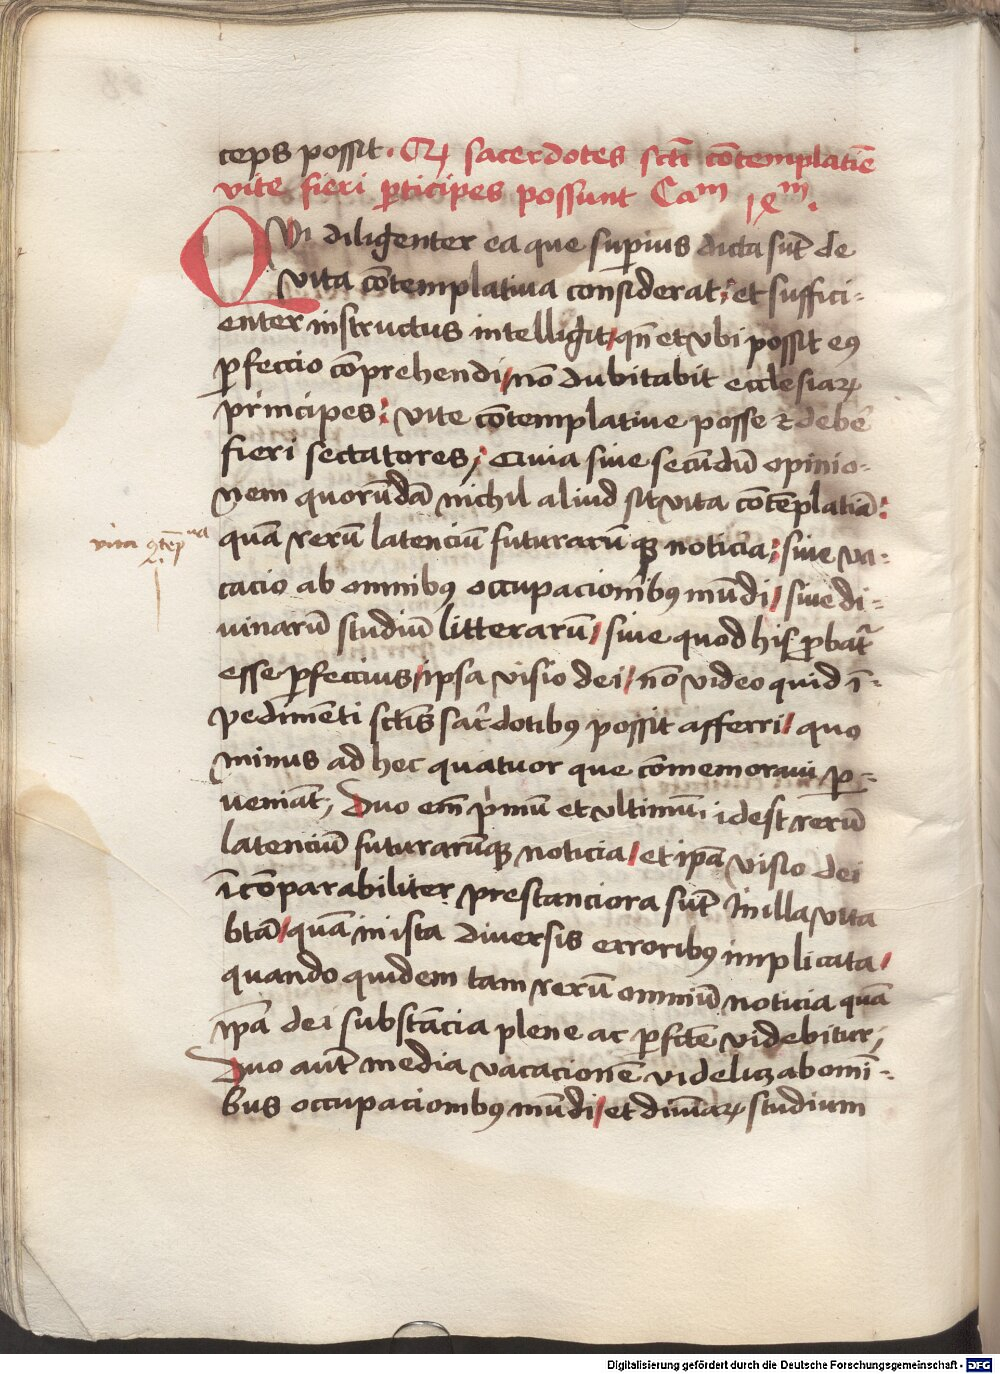 ceps possit. Qꝝ sacerdotes scti cōtemplatiē
vite fieri ꝑticipes possunt Caᵐ ixᵐ.
QVi diligenter ea que suꝑius dicta sūt de
vita cōtemplatiua considerat; et suffici-
enter instructus intelligit/ qn̄ et vbi possit eꝰ
ꝑfeccio cōprehendi/ nō dubitabit ecclesiaꝝ
principes; vite cōtemplatiue posse ⁊ debē
fieri sectatores; Quia siue secūdū opinio-
nem quorūdā nichil aliud sit vita cōtēplatiā:
quā rerū latenciū futurarūqꝫ noticia; siue va-
cacio ab omnibꝰ occupacionibꝰ mūdi/ siue di-
uinarū studiū litterarū/ siue quod his ꝓbat᷑
esse ꝑfeccius/ ipsa visio dei/ nō video quid ī-
pedimēti sctīs sac̄dotibꝰ possit afferri/ quo
minus ad hec quatuor que cōmemoraui ꝑ-
ueniāt; Duo em̄ p̄mū et vltimū idest rerū
latenciū futurarūqꝫ noticia/ et ip̄a visio dei
īcōparabiliter prestanciora sūt in illa vita
btā/ quā in ista diuersis erroribꝰ implicata/
quando quidem tam rerū omniū noticia quā
ip̄a dei substācia plene ac ꝑfctē videbitur;
Duo aūt media vacacionē videlicꝫ ab omī-
bus occupacionibꝰ mūdi/ et diuīaꝝ studium
vita ꝯtēpᵘᵃ
Digitalisierung gefördert durch die Deutsche Forschungsgemeinschaft - DFG